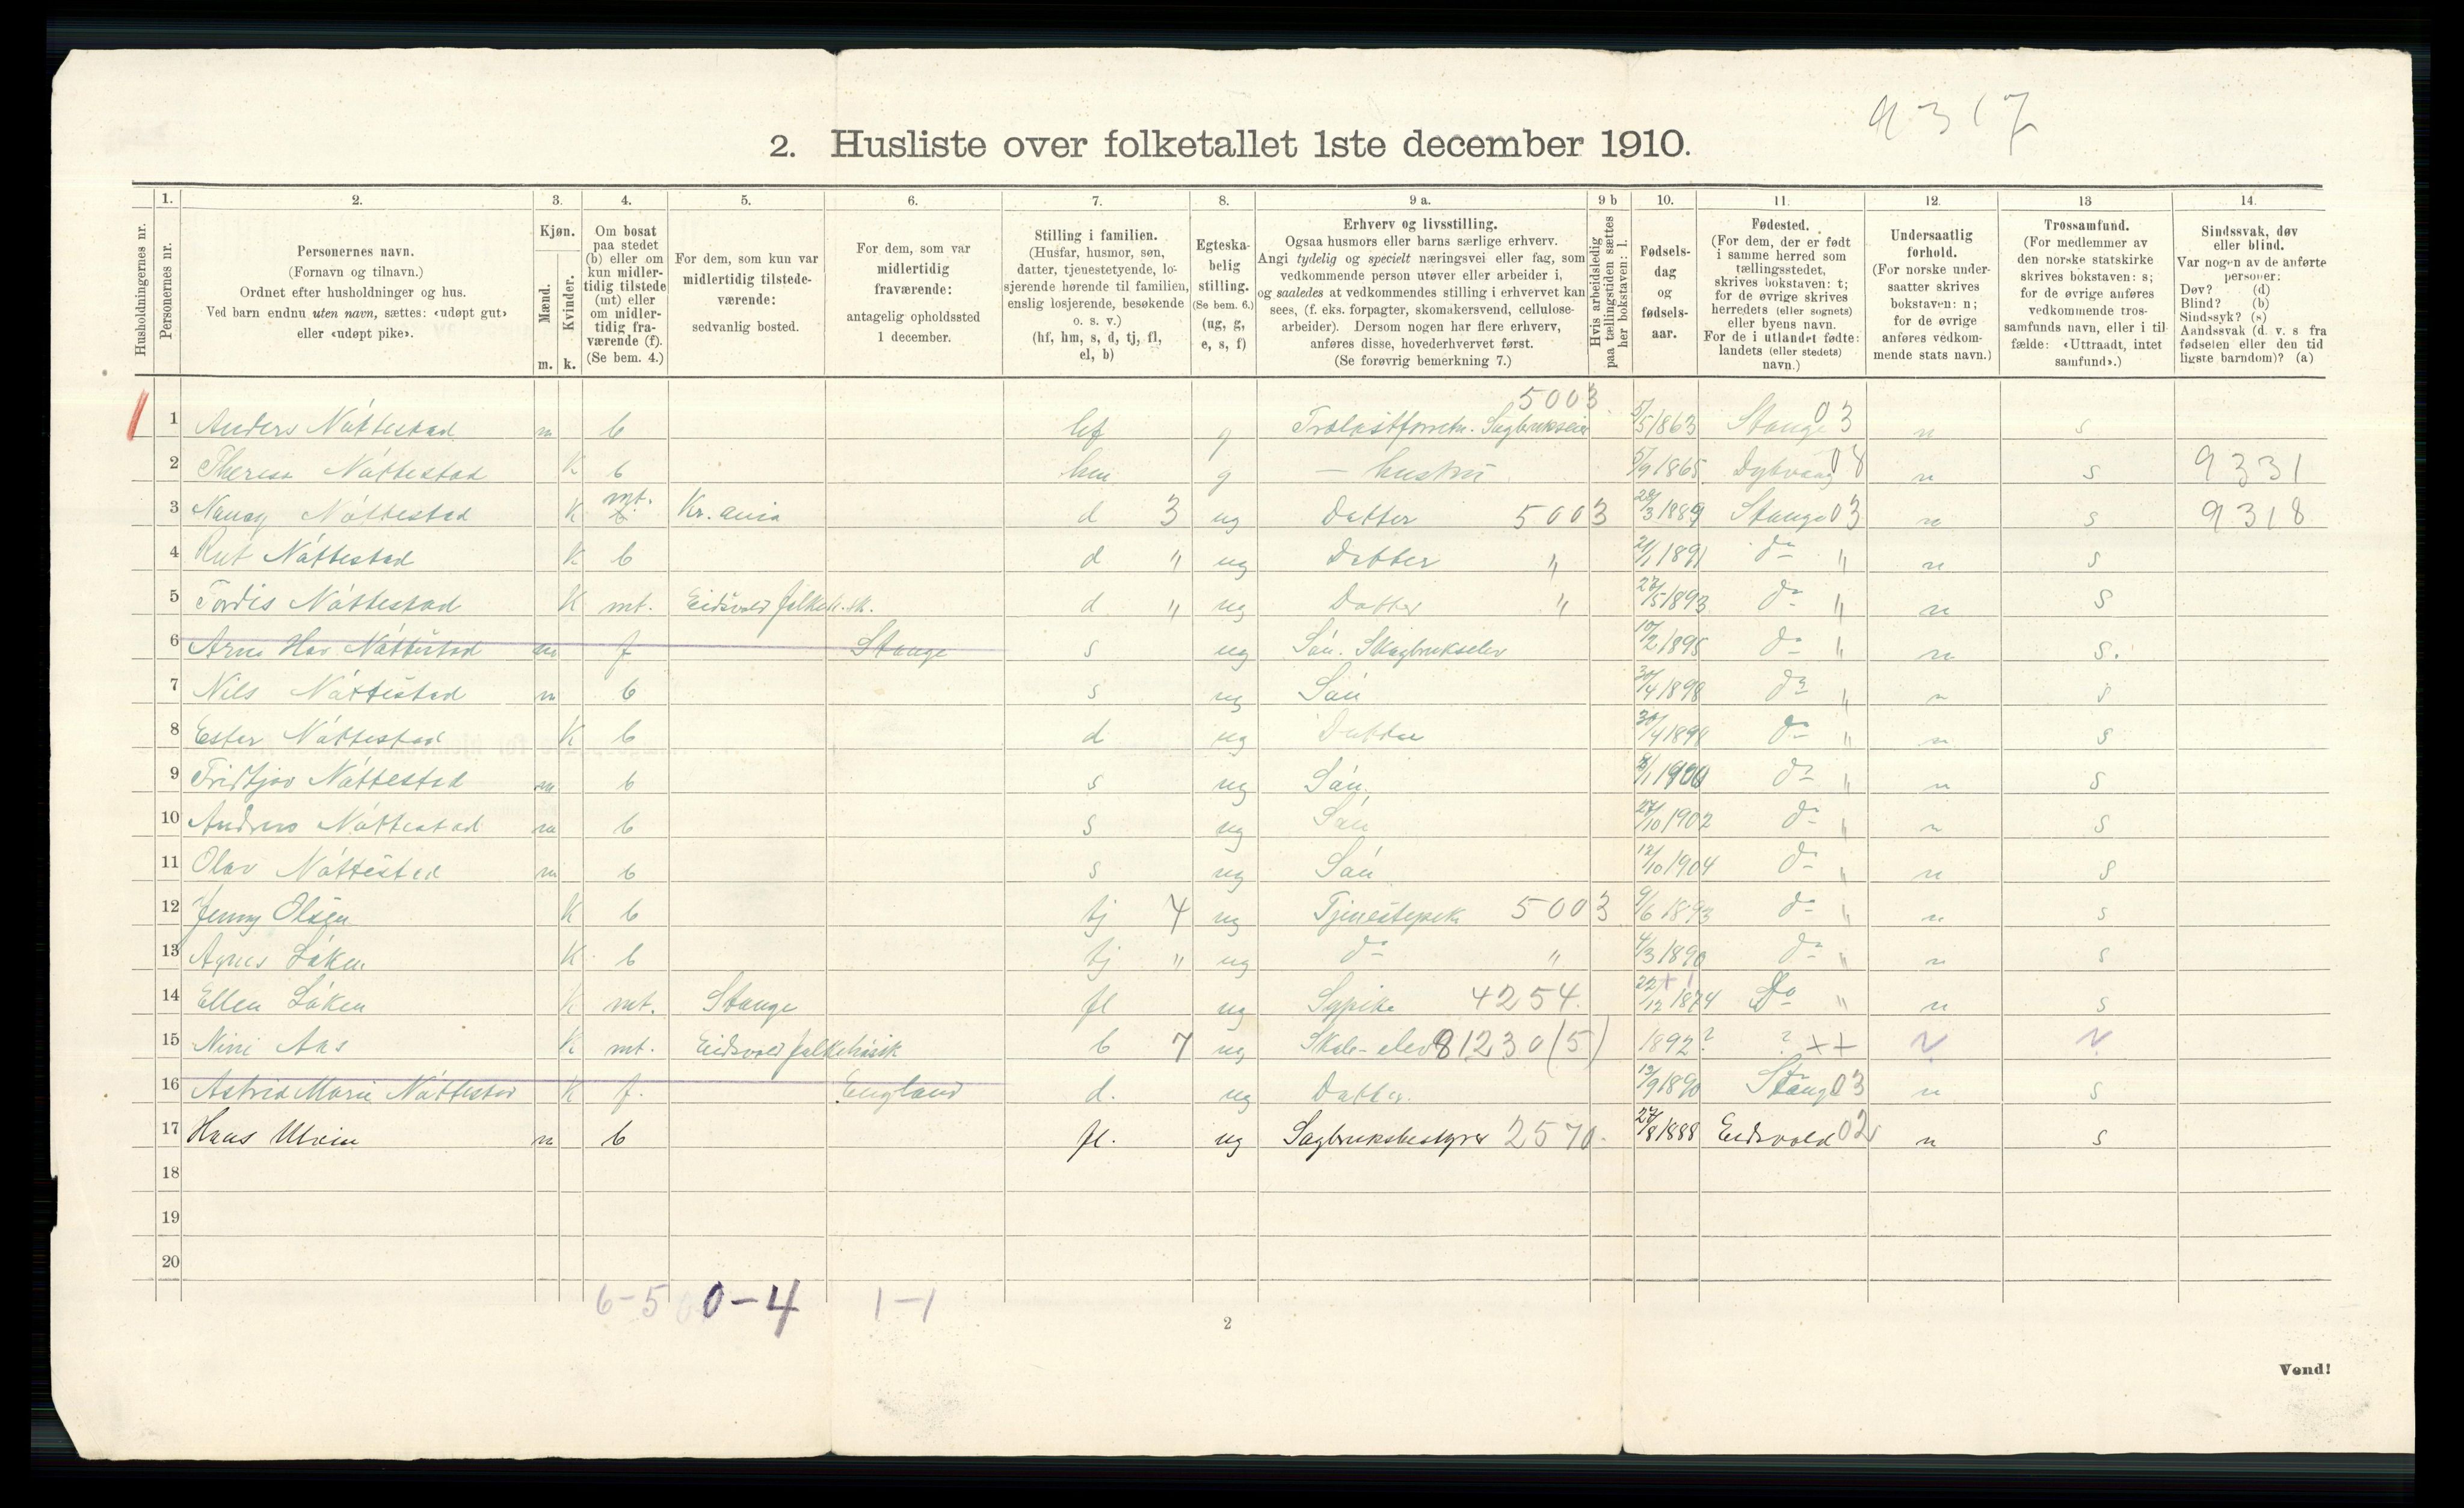 9317
2. Husliste over folketallet 1ste december 1910.
Husholdningernes nr.
1. Personernes nr.
2. Personernes navn.
(Fornavn og tilnavn.)
Ordnet efter husholdninger og hus.
Ved barn endnu uten navn, sættes: «udøpt gut»
eller «udøpt pike».
3. Kjøn.
Mænd. m.
Kvinder. k.
4. Om bosat
paa stedet
(b) eller om
kun midler-
tidig tilstede
(mt) eller
om midler-
tidig fra-
værende (f).
(Se bem. 4.)
5. For dem, som kun var
midlertidig tilstede-
værende:
sedvanlig bosted.
6. For dem, som var
midlertidig
fraværende:
antagelig opholdssted
1 december.
7. Stilling i familien.
(Husfar, husmor, søn,
datter, tjenestetyende, lo-
sjerende hørende til familien,
enslig losjerende, besøkende
o. s. v.)
(hf, hm, s, d, tj, fl,
el, b)
8. Egteska-
belig
stilling.
(Se bem. 6.)
(ug, g,
e, s, f)
9 a. Erhverv og livsstilling.
Ogsaa husmors eller barns særlige erhverv.
Angi tydelig og specielt næringsvei eller fag, som
vedkommende person utøver eller arbeider i,
og saaledes at vedkommendes stilling i erhvervet kan
sees, (f. eks. forpagter, skomakersvend, cellulose-
arbeider). Dersom nogen har flere erhverv,
anføres disse, hovederhvervet først.
(Se forøvrig bemerkning 7.)
9 b Hvis arbeidsledig
paa tællingstiden sættes
her bokstaven: l.
10. Fødsels-
dag
og
fødsels-
aar.
11. Fødested.
(For dem, der er født
i samme herred som
tællingsstedet,
skrives bokstaven: t;
for de øvrige skrives
herredets (eller sognets)
eller byens navn.
For de i utlandet fødte:
landets (eller stedets)
navn.)
12. Undersaatlig
forhold.
(For norske under-
saatter skrives
bokstaven: n;
for de øvrige
anføres vedkom-
mende stats navn.)
13 Trossamfund.
(For medlemmer av
den norske statskirke
skrives bokstaven: s;
for de øvrige anføres
vedkommende tros-
samfunds navn, eller i til-
fælde: «Uttraadt, intet
samfund».)
14. Sindssvak, døv
eller blind.
Var nogen av de anførte
personer:
Døv? (d)
Blind? (b)
Sindssyk? (s)
Aandssvak (d. v. s. fra
fødselen eller den tid
ligste barndom)? (a)
5003
1 Anders Náttestad m b hf g Trælastforretn. Sagbrukseier 5/5 1863 Stange 03 n s
2 Theresa Náttestad K b hm g — hustru 5/9 1865 Dybvaag 08 n s 9331
3 Nanny Náttestad K mt. Kr.ania d 3 ug Datter 5003 20/3 1889 Stange 03 n s 9318
4 Rut Náttestad K b d " ug Datter " 21/1 1891 do " n s
5 Tordis Náttestad K mt. Eidsvold folkeh.sk. d " ug Datter " 27/5 1893 do " n s
6 Arne Hov Náttestad m f Stange s ug Són. Skogbrukselev 10/2 1895 do " n s.
7 Nils Náttestad m b s ug Són 30/4 1898 do " n s
8 Ester Náttestad K b d ug Datter 30/4 1898 do " n s
9 Fridtjov Náttestad m b s ug Són 8/1 1900 do " n s
10 Anders Náttestad m b s ug Són 27/10 1902 do " n s
11 Olav Náttestad m b s ug Són 12/10 1904 do " n s
12 Jenny Olsen K b tj 4 ug Tjenestepike 5003 9/6 1893 do " n s
13 Agnes Lóken K b tj " ug do " 4/3 1890 do " n s
14 Ellen Lóken K mt. Stange fl ug Sypike 4254. 22/12 1874 Do " n s
15 Nini Aas K mt. Eidsvold folkehóisk b 7 ug Skole-elev 81230(5) 1892? ? ++ n
16 Astrid Marie Náttestad K f. England d. ug Datter. 13/9 1890 Stange 03 n s
17 Hans Ulvin m b fl. ug Sagbruksbestyrer 2570. 27/8 1888 Eidsvold 02 n s
18
19
20
6-5 0-4 1-1
2
Vend!